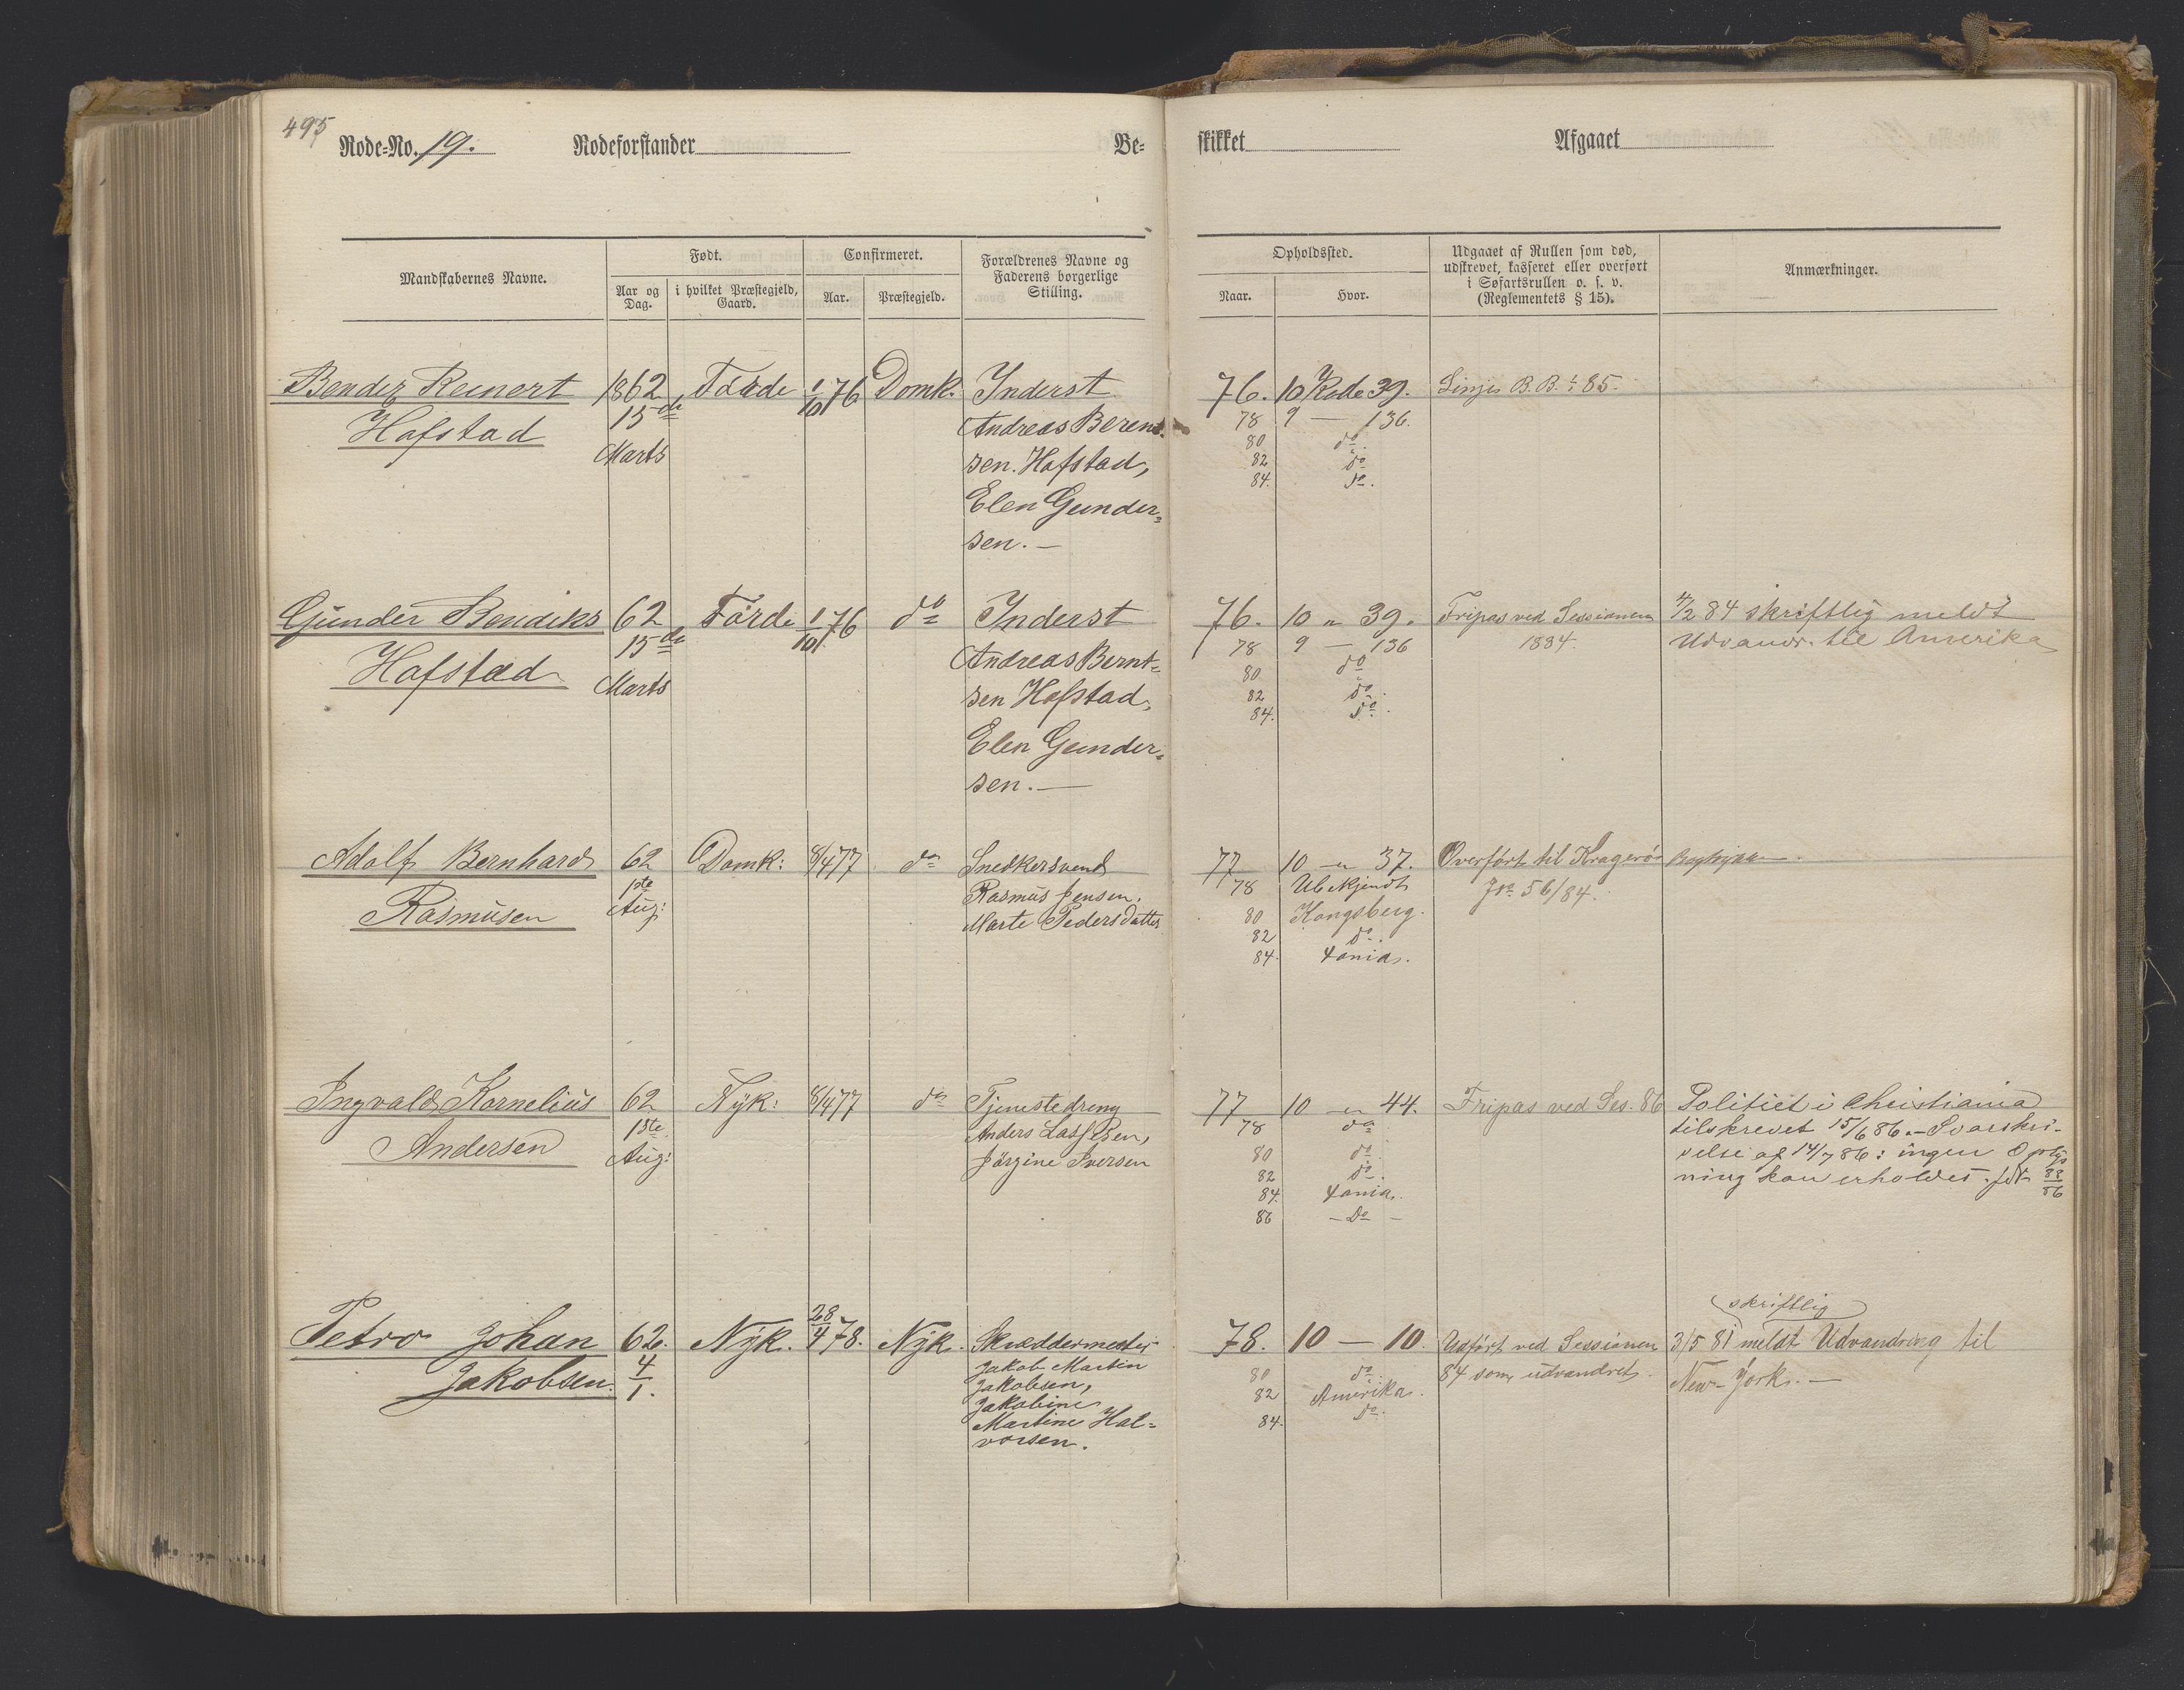 495
Rode-No. 19. Rodeforstander Be- skikket Afgaaet
Mandskabernes Navne. Født. Confirmeret. Forældrenes Navne og Faderens borgerlige Stilling. Opholdssted. Udgaaet af Rullen som død, udskrevet, kasseret eller overført i Søfartsrullen o. s. v. (Reglementets § 15). Anmærkninger.
Aar og Dag. i hvilket Præstegjeld, Gaard. Aar. Præstegjeld. Naar. Hvor.
Bendix Reinert 1862 Förde 1/10 76 Domk. Inderst 76. 10 Rode 39. Linje B. B. 85.
Hafstad 15de Andreas Berent- 78 9 — 136.
Marts sen. Hafstad, 80 do
82 do
Elen Gunder- 84. do.
sen. —
Gunder Bendiks 62 Förde 1/10 76 do Inderst 76. 10 " 39. Fripas ved Sessionen 4/2 84 skriftlig meldt
15de 78 9 — 136 1884. Udvandr. til Amerika
Hafstad Marts Andreas Bernt- 80 do
sen Hafstad, 82 do.
84. do.
Elen Gunder-
sen. —
Adolf Bernhard 62 Domk: 8/4 77 do Snedkersvend 77 10 — " 37. Overført til Kragerö
1ste Rasmus Jensen, 78 Ubekjendt Jno 56/84.
Rasmusen Aug: Marte Pedersdatter 80 Kongsberg.
82 do.
84. Xania.
Ingvald Kornelius 62 Nyk: 8/4 77 do Tjenestedreng 77 10 — " 44. Fripas ved Ses. 86 Politiet i Christiania
1ste Anders Lassesen, 78 do tilskrevet 15/6 86. — Svarskri-
Andersen Aug: Jörgine Iversen 80 do velse af 14/7 86: ingen Oplys
82 do. ning kan erholdes. 
84. Xania.
86 — Do —
skriftlig
Petro Johan 62. Nyk. 28/4 78. Nyk. Skræddermester 78. 10 — 10. Udført ved Sessionen 3/5 81 meldt Udvandring til
Jakobsen. 4/1. Jakob Martin 80 do. 84 som udvandret. New-York. —
Jakobsen, 82 Amerika.
Jakobine 84. do.
Martine Hal-
vorsen.